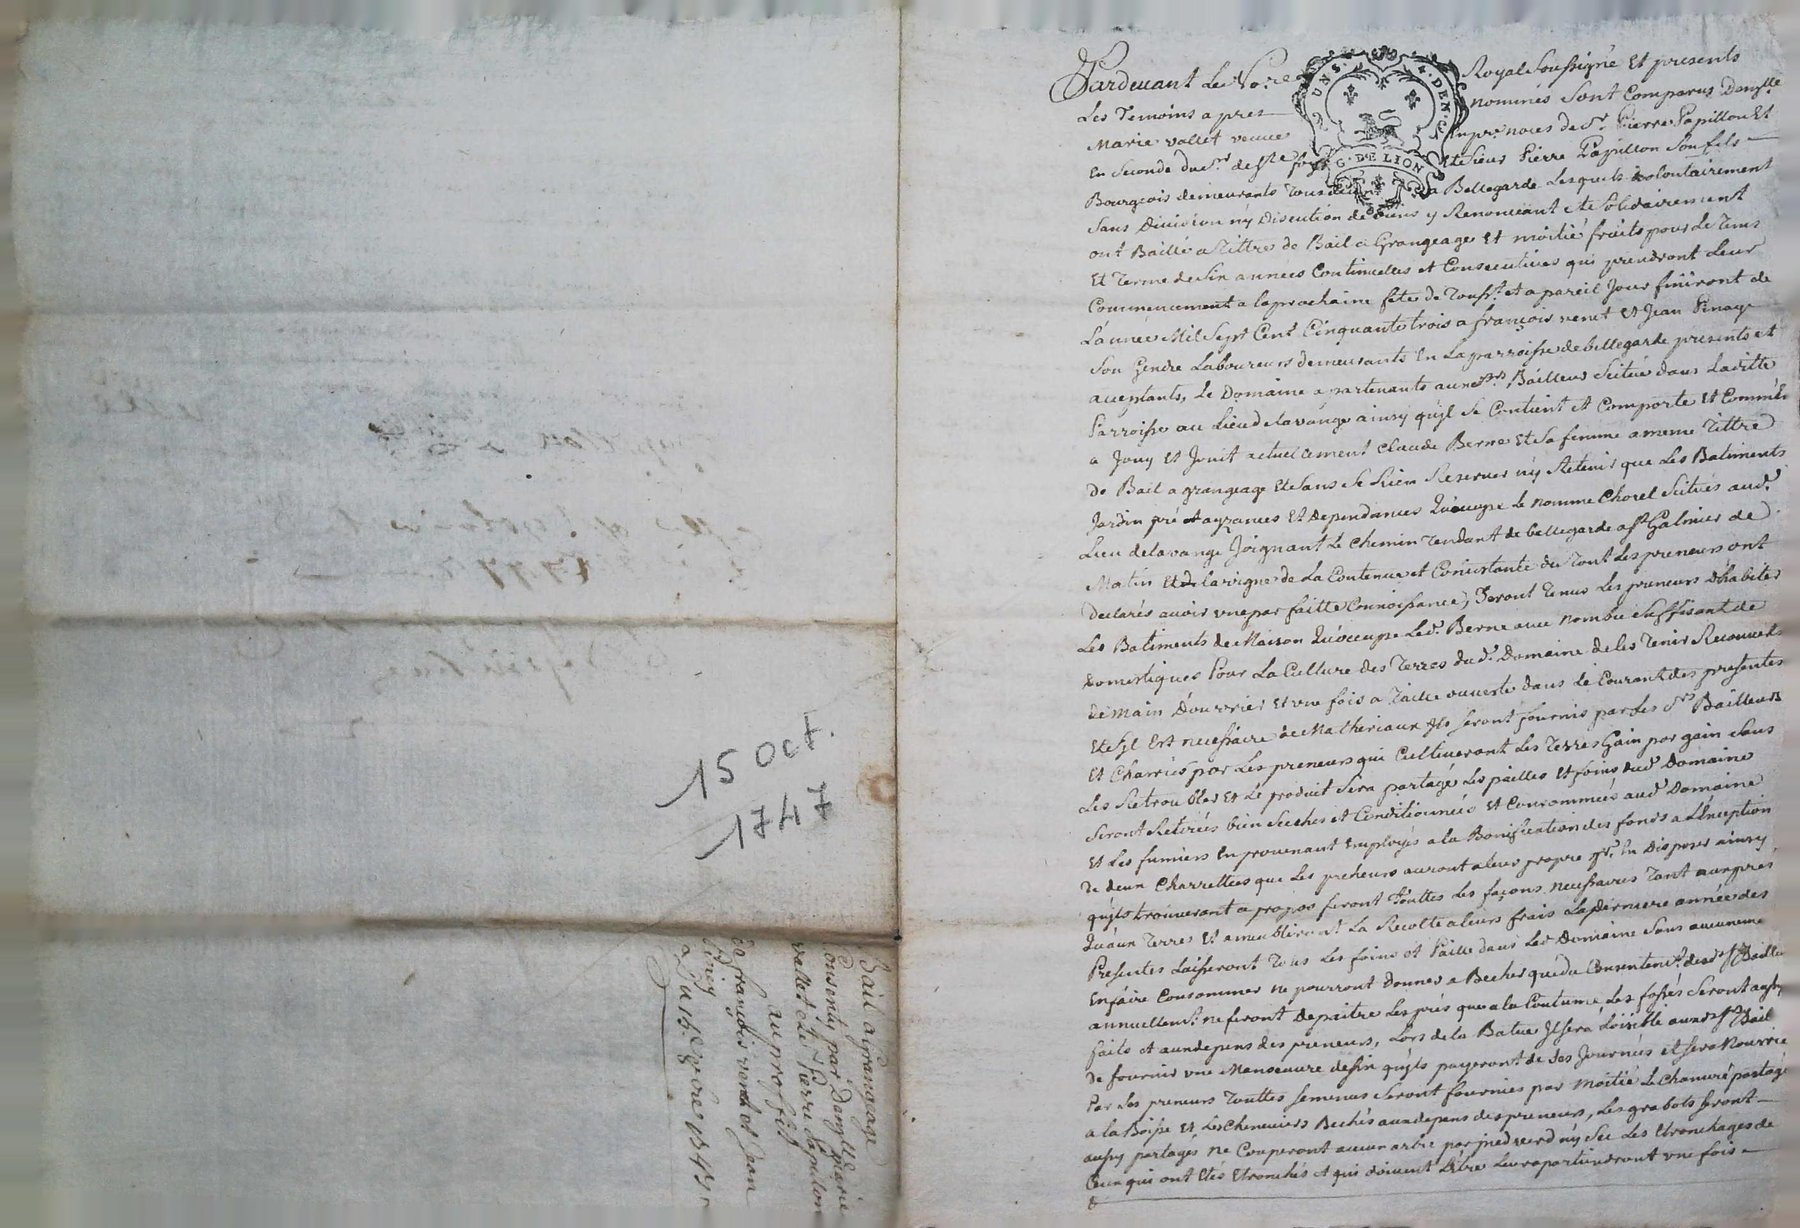 15 Oct.
1747
Bail a grangeage
Consenty par Dam.lle marie
vallet et Sr. Pierre Papillon
au proffit
de françois venet et Jean
Pinay
Du 15. 8bre 1747
Pardevant Le No.re Royal Soussigné Et presents
Les Temoins apres nommés Sont Comparus Dam.lle
Marie vallet veuve En pres. noces de Sr. Pierre Papillon Et
En Seconde du Sr. de Ste foy Et Sieur Pierre Papillon Son fils
Bourgeois demeurants Tous deux a Bellegarde Lesquels volontairement
Sans Division n'y Discution de biens y Renonceant et Solidairement
ont Baillé a Tittre de Bail a Grangeage Et moitié fruits pour Le Tems
Et Terme de Six années Continuelles et Consecutives qui prendront Leur
Commencement a la prochaine fete de Touss.t et a pareil Jour finiront de
L'année Mil Sept Cent Cinquante trois a françois venet Et Jean Pinay
Son Gendre Laboureurs demeurants En La parroisse de bellegarde presents et
aceptants, Le Domaine apartenants aux Srs. Bailleurs Scitué dans Laditte
Parroisse au Lieu de lavange ainsy qu'jl Se Contient et Comporte Et Comme
a Jouy Et Jouit actuellement Claude Berne Et Sa femme a meme Tittre
de Bail a grangeage Et Sans Se Rien Reserver n'y Retenir que Les Batiments
Jardin pré et ayzances Et dependances Qu'occupe Le nommé Chorel Scitués aud.
Lieu de lavange Joignant Le Chemin Tendant de bellegarde a St. Galmier de
Matin Et de la vigne de La Contenue et Consistance du Tout Les preneurs ont
declarés avoir une parfaitte Connoissance; Seront Tenus Les preneurs d'habiter
Les Batiments de Maison Qu'occupe Led. Berne avec nombre Suffisant de
Domestiques Pour La Culture des Terres dud. Domaine de les Tenir Recouverts
de main d'ouvrier Et une fois a Taille ouverte dans Le Courant des presentes
Et S'jl Est necessaire de Matheriaux jls Seront fournis par Les Srs. Bailleurs
Et Charriés par Les preneurs qui Cultiveront Les Terres Gain par gain Sans
Les Retroubler Et Le produit Sera partagé Les pailles Et foins dud. Domaine
Seront Retirés bien Seches et Conditionnés Et Consommés aud. Domaine
Et Les fumiers En provenant Employés a la Bonification des fonds a L'Exception
de deux Charrettées que Les preneurs auront a leur propre En Disposer ainsy
qu'jls trouveront a propos feront Touttes Les façons necessaires Tant aux prés
Qu'aux Terres Et ameubliront La Recolte a leurs frais La Derniere année des
Presentes Laisseront Tous Les foins et Paille dans Led. Domaine Sans aucunement
En faire Consommer ne pourront donner a Becher que du Consentem.t desd. Srs. Bailleurs
annuellem.t ne feront depaitre Les prés que a la Coutume Les fossés Seront
faits et aux depens des preneurs, Lors de la Batue Jl Sera Loisible auxd. Srs. Bail
de fournir une Manoeuvre qu'jls payeront de Ses Journées et Sera Nourrie
Par Les preneurs Touttes Semences Seront fournies par Moitié Le Chanvre partagé
a la Boisse Et Les Cheneviers Bechés aux depens des preneurs, Les grabots Seront
aussy partagés ne Couperont aucun arbre par pied verd n'y Sec Les Etronchages de
Ceux qui ont Etés Etronchés et qui doivent L'Etre Leur apartiendront une fois